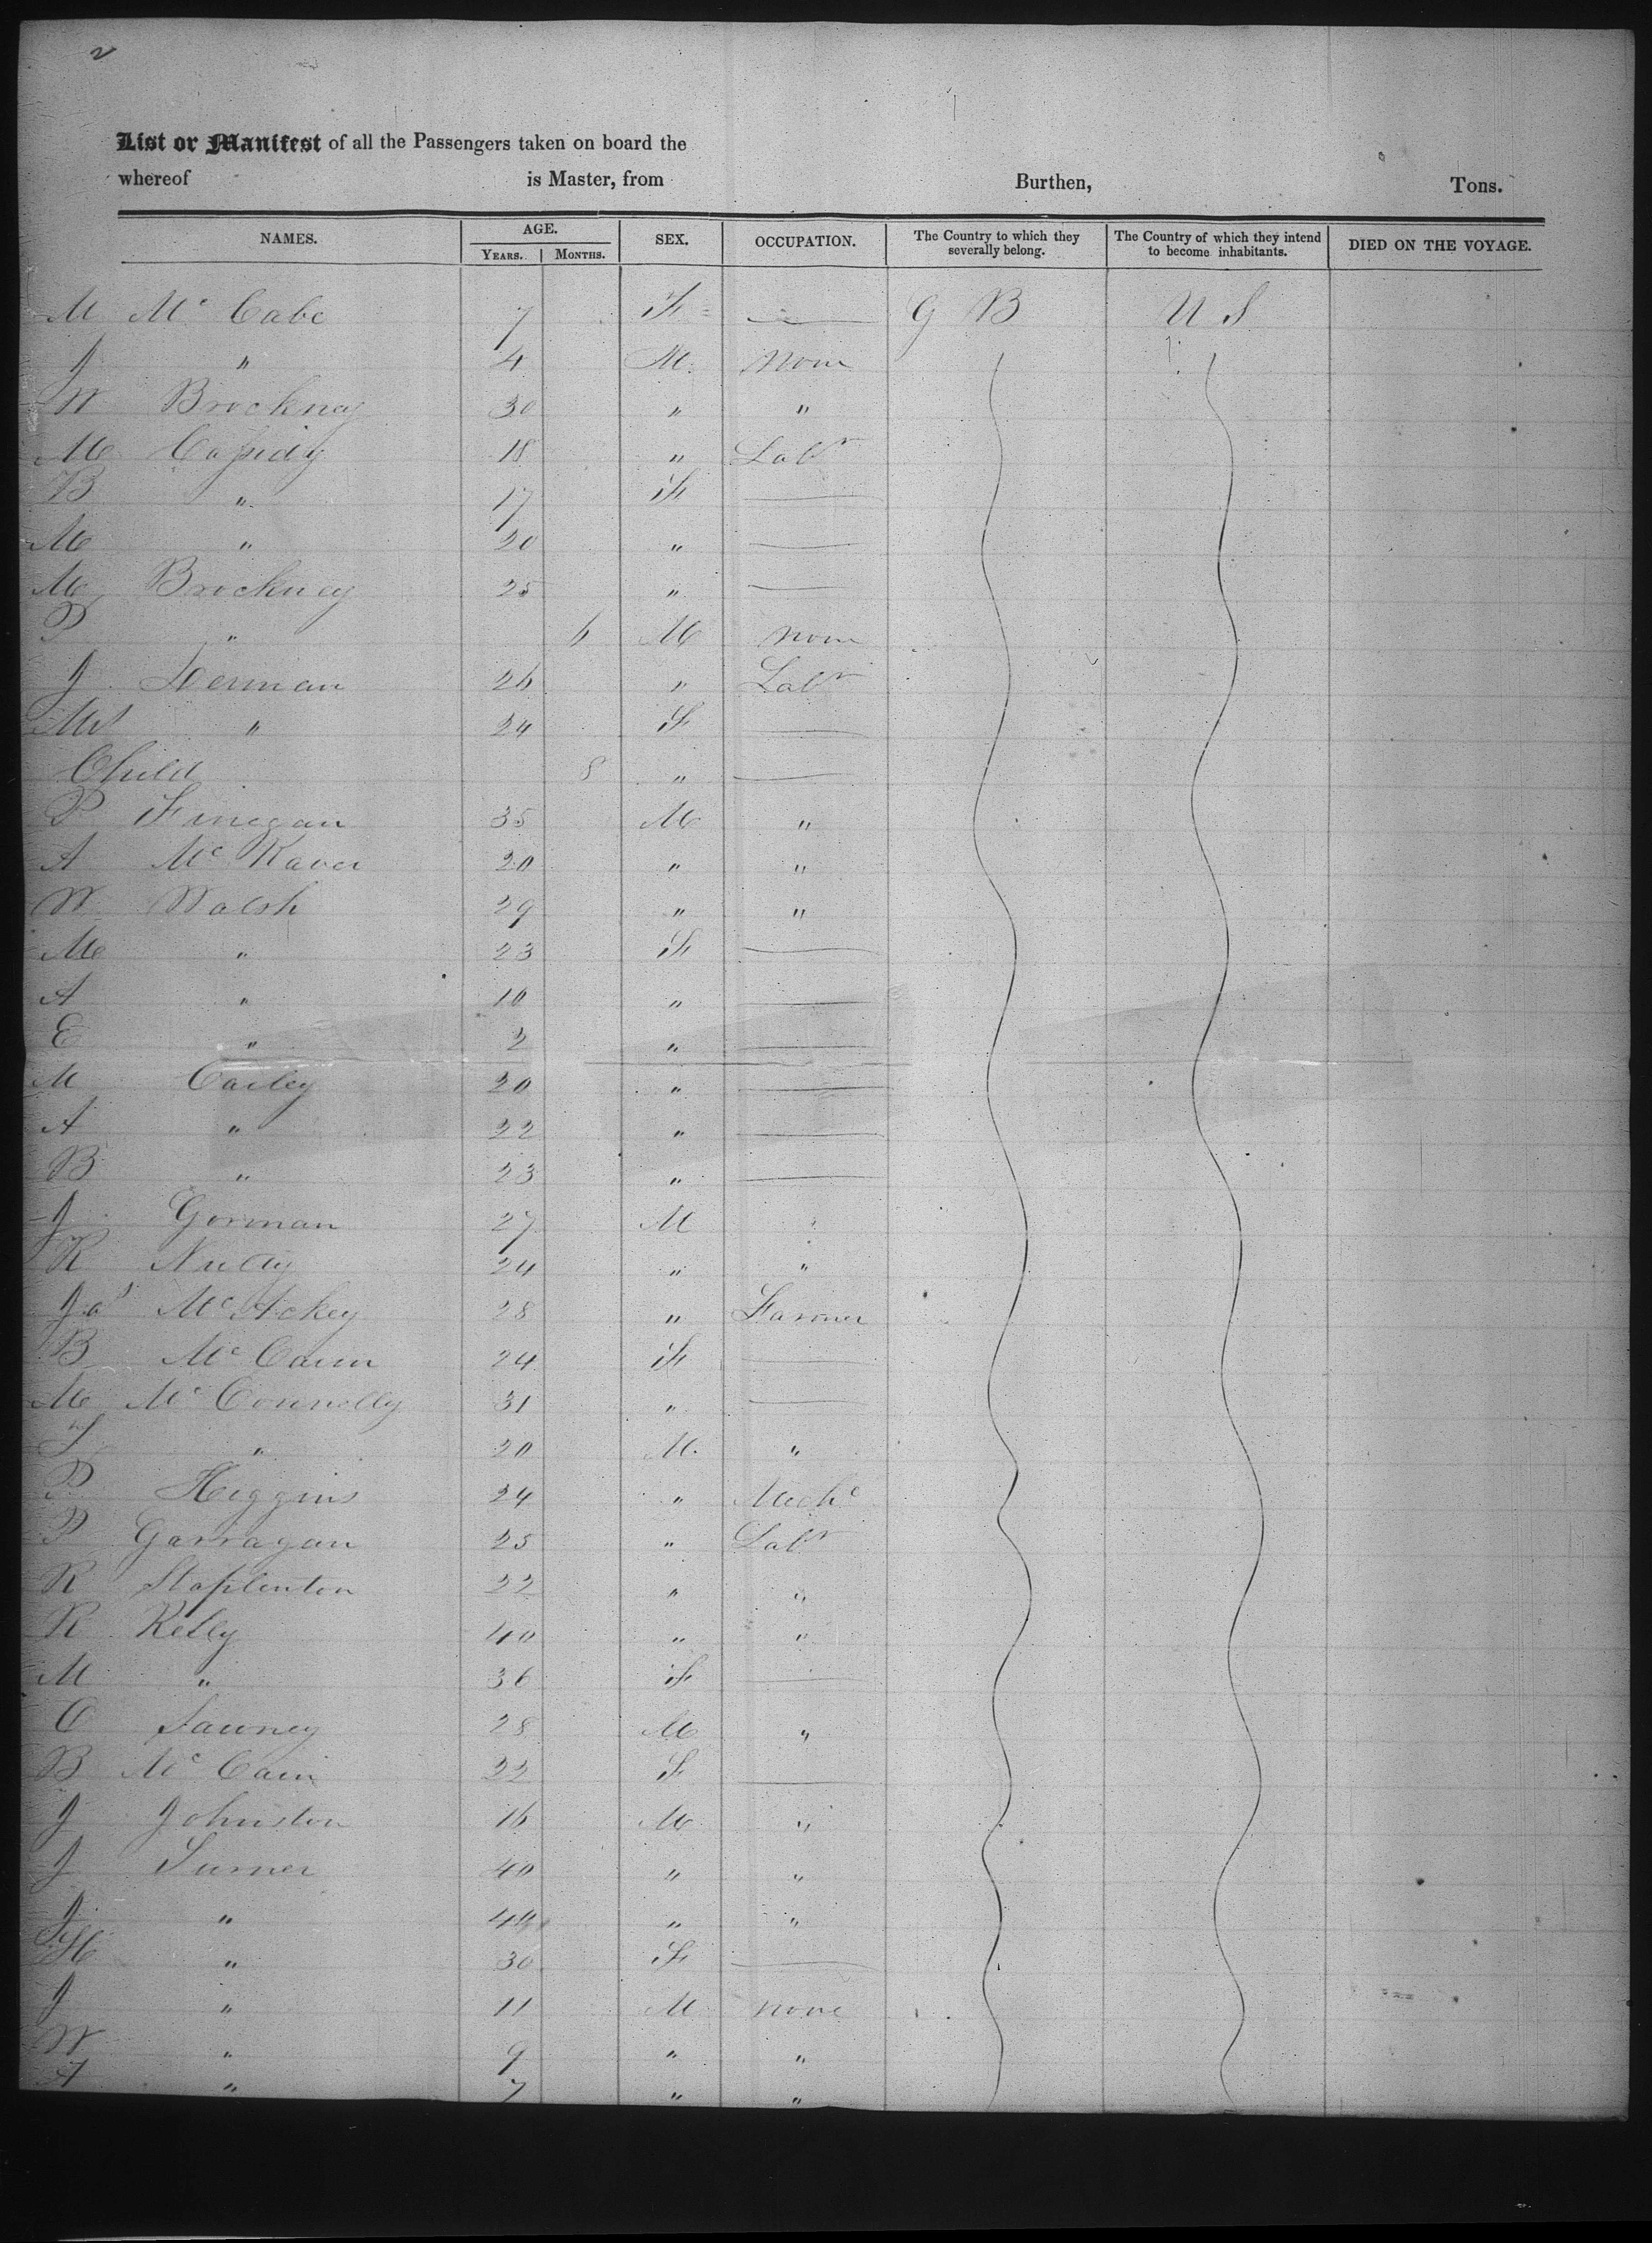 2
List or Manifest of all the Passengers taken on board the
whereof is Master, from Burthen, Tons.
NAMES. AGE. YEARS. MONTHS. SEX. OCCUPATION. The Country to which they severally belong. The Country of which they intend to become inhabitants. DIED ON THE VOYAGE.
M Mc Cabe 7 F — G B U S
J " 4 M. None
W Brockney 30 " "
M Cassidy 18 " Labr
B " 17 F —
M " 20 " —
M Brockney 25 " —
P " 6 M None
J Herman 26 " Labr
Mrs " 24 F —
Child 8 " —
P Finegan 35 M "
A Mc Kaver 20 " "
W Walsh 29 " "
M " 23 F —
A " 10 " —
E " 2 " —
M Carley 20 " —
A " 22 " —
B " 23 " —
J Gorman 27 M "
K Nulty 24 " "
Jas McAckey 28 " Farmer
B Mc Cann 24 F —
M Mc Connolly 31 " —
T " 20 M. "
P Higgins 24 " Mechc
P Garragan 25 " Labr
R Staplenton 22 " "
R Kelly 40 " "
M " 36 F —
C Fawney 28 M "
B Mc Cann 22 F —
J Johnston 16 M "
J Turner 40 " "
J " 44 " "
H " 30 F —
J " 11 M none
W " 9 " "
A " 7 " "